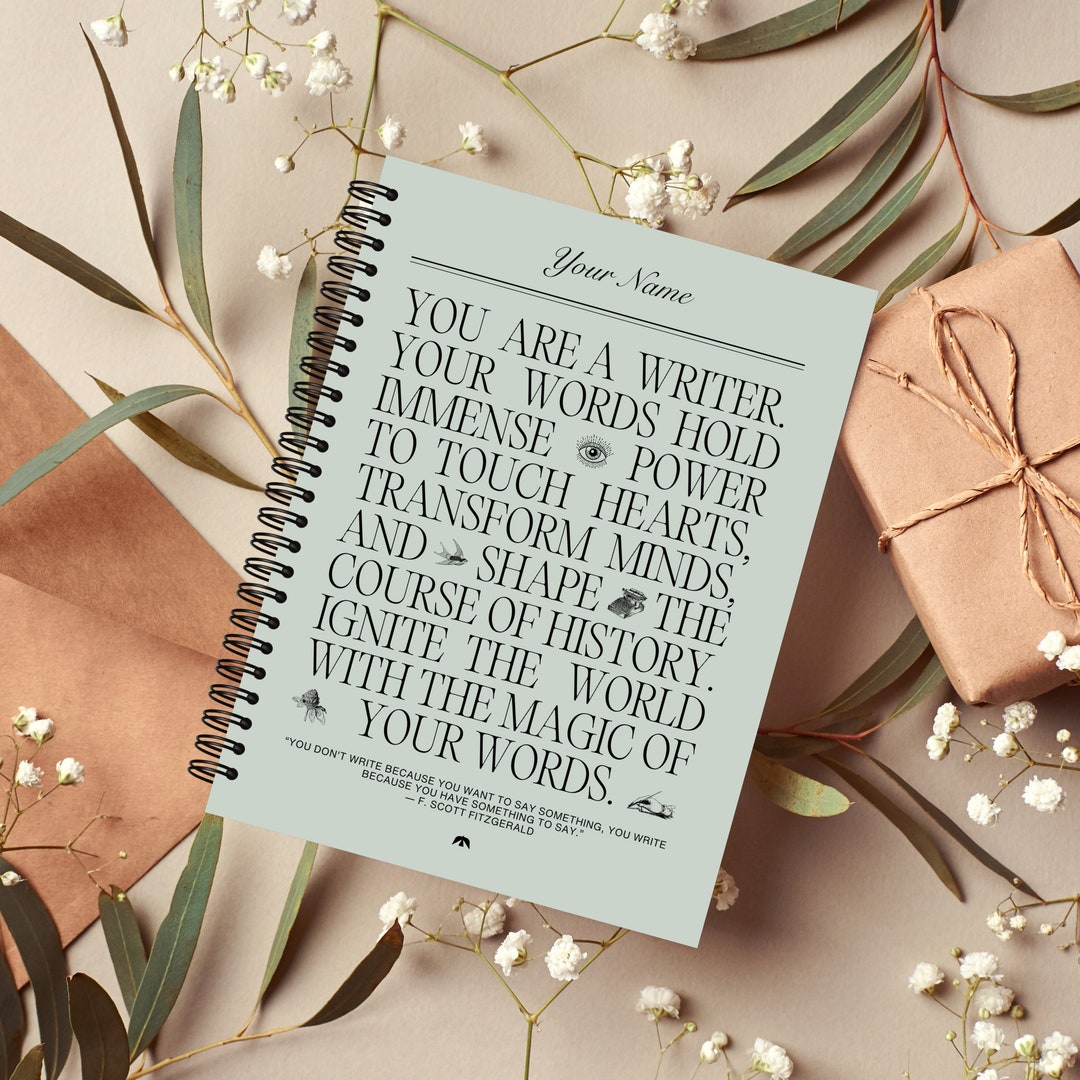 Your Name
YOU ARE A WRITER.
YOUR WORDS HOLD
IMMENSE POWER
TO TOUCH HEARTS,
TRANSFORM MINDS,
AND SHAPE THE
COURSE OF HISTORY.
IGNITE THE WORLD
WITH THE MAGIC OF
YOUR WORDS.
"YOU DON'T WRITE BECAUSE YOU WANT TO SAY SOMETHING, YOU WRITE
BECAUSE YOU HAVE SOMETHING TO SAY."
— F. SCOTT FITZGERALD